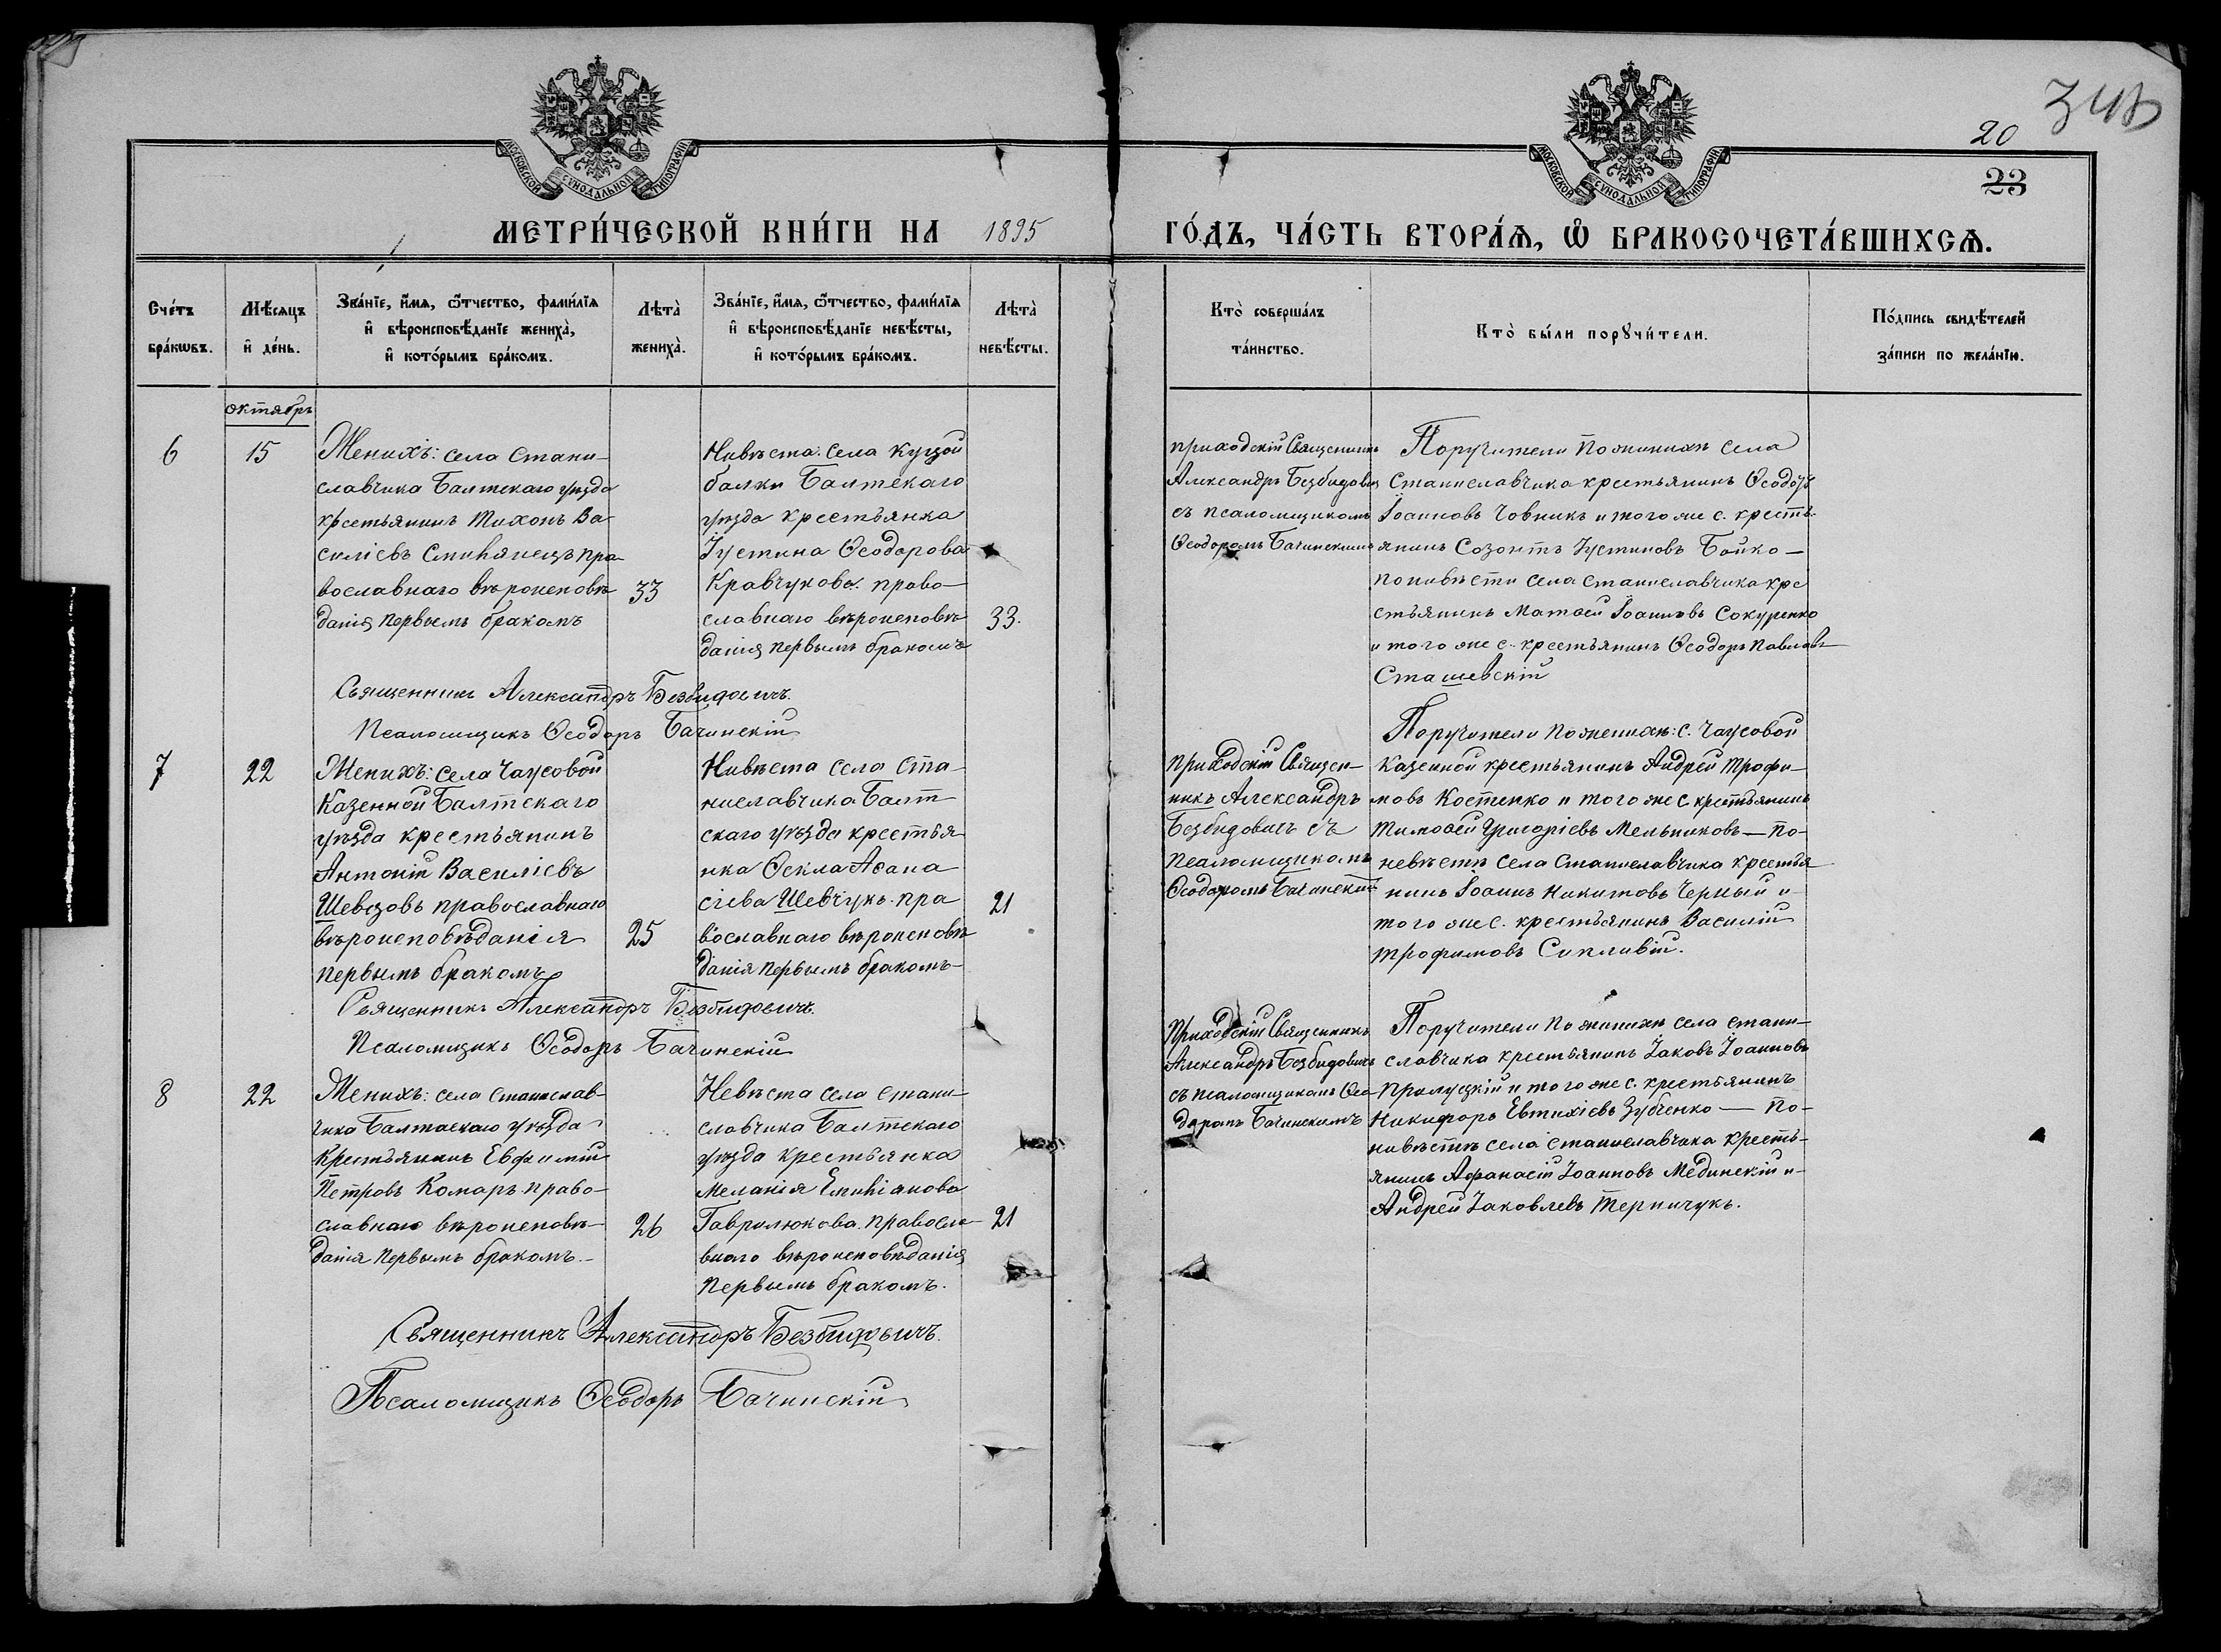 МОСКОВСКОЙ СѴНОДАЛЬНОЙ ТИПОГРАФІИ
МОСКОВСКОЙ СѴНОДАЛЬНОЙ ТИПОГРАФІИ
20
23
МЕТРИ́ЧЕСКОЙ КНИ́ГИ НА 1895
ГО́ДЪ, ЧА́СТЬ ВТОРА́Ѧ, Ѽ БРАКОСОЧЕТА́ВШИХСѦ.
Сче́тъ бра́кѡвъ.
Мѣ́сяцъ и҆ де́нь.
Зва́нїе, и҆́мѧ, ѻ҆́тчество, фами́лїѧ
и҆ вѣроисповѣ́данїе жениха̀,
и҆ кото́рымъ бра́комъ.
Лѣта̀ жениха̀.
Зва́нїе, и҆́мѧ, ѻ҆́тчество, фами́лїѧ
и҆ вѣроисповѣ́данїе невѣ́сты,
и҆ кото́рымъ бра́комъ.
Лѣта̀ невѣ́сты.
Кто̀ соверша́лъ
та́инство.
Кто̀ бы́ли порꙋчи́тели.
По́дпись свидѣ́телей
за́писи по жела́нїю.
октябрь
6
15
Женихъ: села Стани-
славчика Балтскаго уѣзда
крестьянинъ Тихонъ Ва-
силіевъ пра
вославнаго вѣроисповѣ
данія первымъ бракомъ
33
Нивѣста: села Куцой
балки Балтскаго
уѣзда крестьянка
Іустина Ѳеодорова
Кравчукова право-
славнаго вѣроисповѣ
данія первымъ бракомъ
33.
приходскій Священникъ
Александръ Безбидовичъ
съ псаломщикомъ
Ѳеодоромъ Бачинскимъ
Поручители по женихѣ села
Станиславчика крестьянинъ Ѳеодоръ
Іоанновъ Човникъ и того же с. кресть
янинъ Созонтъ Іустиновъ Бойко —
по нивѣсти села Станиславчика кре
стьянинъ Матѳей Іоанновъ Сокуренко
и того же с. крестьянинъ Ѳеодоръ Павловъ
Сташевскій
Священникъ Александръ Безбидовичъ.
Псаломщикъ Ѳеодоръ Бачинскій
7
22
Женихъ: села Чаусовой
Казенной Балтскаго
уѣзда крестьянинъ
Антоній Василіевъ
Шевцовъ православнаго
вѣроисповѣданія
первымъ бракомъ
25
Нивѣста села Ста-
ниславчика Балт
скаго уѣзда крестья
нка Ѳекла Аѳана
сіева Шевчукъ. пра
вославнаго вѣроисповѣ
данія первымъ бракомъ-
21
Приходскій Священ-
никъ Александръ
Безбидовичъ съ
псаломщикомъ
Ѳеодоромъ Бачинскимъ
Поручители по женихѣ: с. Чаусовой
Казенной крестьянинъ Андрей Трофи-
мовъ Костенко и того же с. крестьянинъ
Тимоѳей Григоріевъ Мельниковъ — по-
невѣстѣ села Станиславчика крестья
нинъ Іоаннъ Никитовъ Черный и
того же с. крестьянинъ Василій
Трофимовъ Сипливій.
Священникъ Александръ Безбидовичъ.
Псаломщикъ Ѳеодоръ Бачинскій
8
22
Женихъ: села Станислав-
чика Балтскаго уѣзда
Крестьянинъ Евфимій
Петровъ Комаръ. право-
славнаго вѣроисповѣ-
данія первымъ бракомъ.-
26
Невѣста села Стани-
славчика Балтскаго
уѣзда крестьянка
Меланія
Гаврилюкова. правосла-
внаго вѣроисповѣданія
первымъ бракомъ.
21
Приходскій Священникъ
Александръ Безбидовичъ
съ псаломщикомъ Ѳео-
доромъ Бачинскимъ
Поручители по женихѣ села Стани-
славчика крестьянинъ Іаковъ Іоанновъ
Прилуцкій и того же с. крестьянинъ
Никифоръ Евтихіевъ Зубченко — по-
нивѣстѣ села Станиславчика кресть-
янинъ Афанасій Іоанновъ Мединскій и-
Андрей Іаковлевъ Терничукъ.
Священникъ Александръ Безбидовичъ.
Псаломщикъ Ѳеодоръ Бачинскій